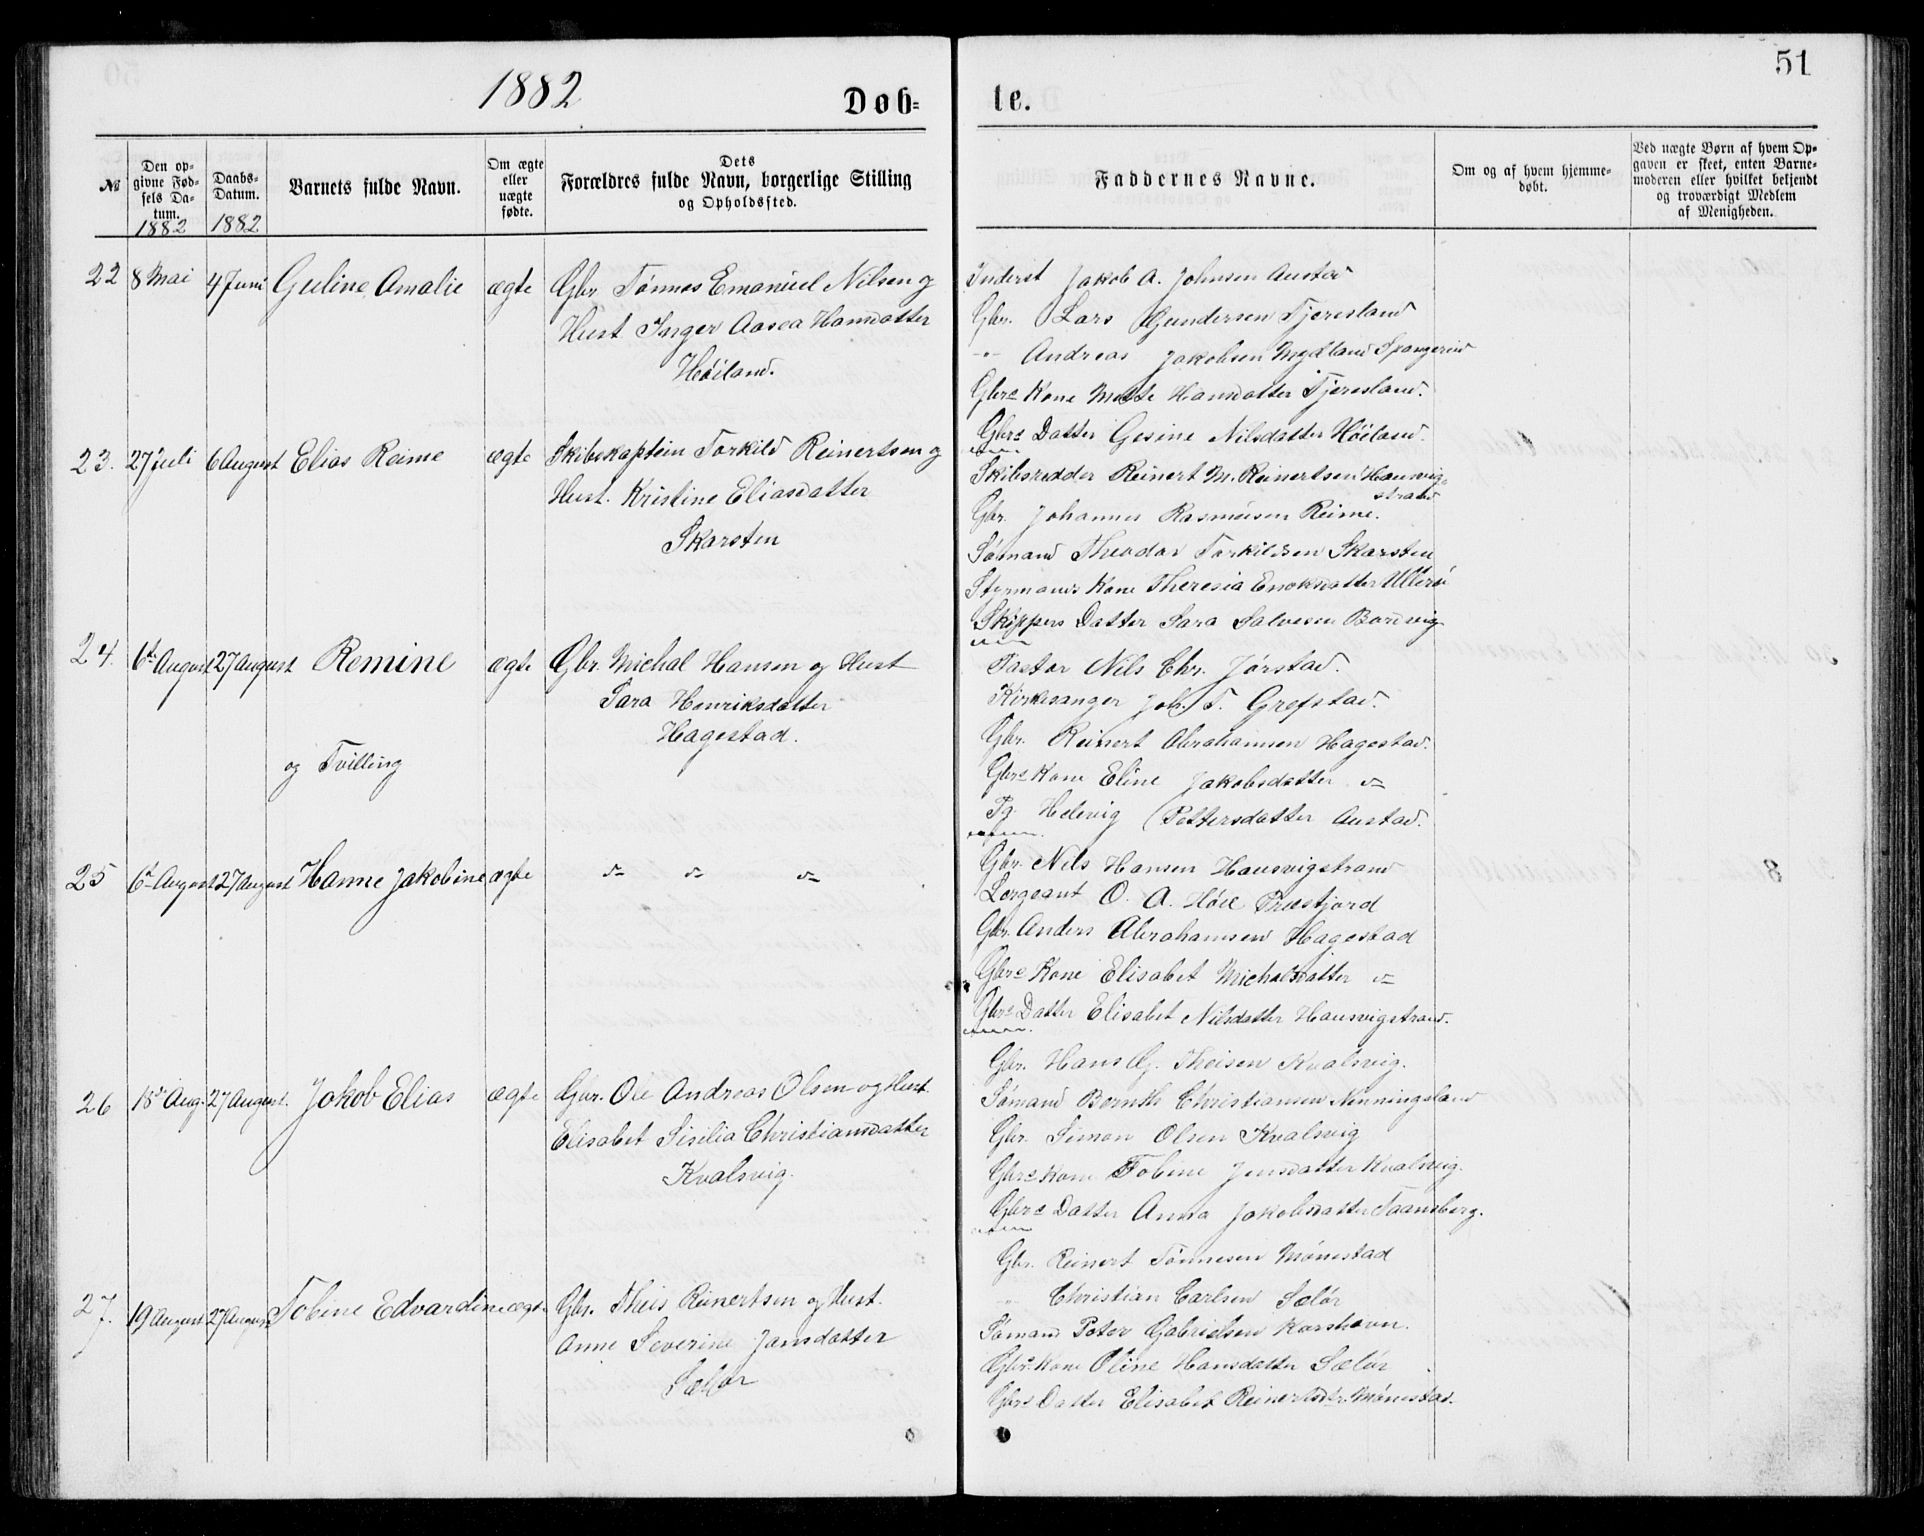 1882
Døb-
te.
51
№
Den op-
givne Fød-
sels Da-
tum.
1882
Daabs-
Datum.
1882
Barnets fulde Navn.
Om ægte
eller
uægte
fødte.
Dets
Forældres fulde Navn, borgerlige Stilling
og Opholdssted.
Faddernes Navne.
Om og af hvem hjemme-
døbt.
Ved uægte Børn af hvem Op-
gaven er skeet, enten Barne-
moderen eller hvilket bekjendt
og troværdigt Medlem
af Menigheden.
22 8 Mai 4 Juni Guline Amalie ægte
Gbr. Tønnes Emanuel Nilsen og
Hust Inger Aasea Hansdatter
Høiland.
Inderst Jakob A. Johnsen Austad
Gbr. Lars Gundersen Tjeresland
-"- Andreas Jakobsen Mydland Spangerew
Gbrs Kone Mette Hansdatter Tjeresland.
Gbrs Datter Gesine Nilsdatter Høiland.
23. 27 Juli 6 August Elias Reime ægte
Skibskaptein Torkild Reinertsen og
Hust. Kristine Eliasdatter
Skarsten
Skibsredder Reinert M. Reinertsen Hausvig-
strand
Gbr. Johannes Rasmusen Reime.
Sømand Theodor Torkildsen Skarsten
Styrmands Kone Theresia Enoksdatter Ullerø
Skippers Datter Sara Salvesen
24. 6te August 27 August Remine ægte
Gbr. Michal Hansen og Hust
Sara Henriksdatter
Hagestad.
og Tvilling
Pastor Nils Chr. Jørstad.
Kirkesanger Joh. T. Grefstad.
Gbr. Reinert Abrahamsen Hagestad.
Gbrs Kone Eline Jakobsdatter
Pg. Helevig Pettersdatter Austad.
25 6te August 27 August Hanne Jakobine ægte
Gbr. Nils Hansen Hausvigstrand
Sergeant O. A. Høie
Gbr. Anders Abrahamsen Hagestad
Gbrs Kone Elisabet Michalsdatter
Gbrs Datter Elisabet Nilsdatter Hausvigstrand.
26 15de Aug. 27 August. Jakob Elias ægte
Gbr. Ole Andreas Olsen og Hust
Elisabet Sisilia Christiansdatter
Kvalsvig.
Gbr. Hans G. Theisen Kvalsvig.
Sømand Berntb Christiansen Nenningsland
Gbr. Simon Olsen Kvalsvig
Gbrs Kone Tobine Jensdatter Kvalsvig.
Gbrs Datter Anna Jakobsdatter Taansberg.
27. 19 August 27 August Tobine Edvardine ægte
Gbr. Theis Reinertsen og Hust.
Anne Severine Jansdatter
Sælør
Gbr. Reinert Tønnesen Mønestad
-"- Christian Carlsen Sælør
Sømand Peter Gabrielsen Korshavn.
Gbrs Kone Oline Hansdatter Sælør
Gbrs Datter Elisabet Reinertsdtr. Mønestad.